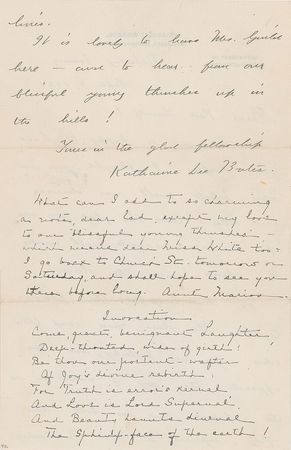 lines.
It is lovely to have Mrs. Guild
here – and to hear from our
blissful young thrushes up in
the hills!
Yours in the glad fellowship
Katharine Lee Bates.
What can I add to so charming
a note, dear Lad, except my love
to our blissful young thrushes –
which means dear Miss White too.
I go back to Church St. tomorrow or
Saturday, and shall hope to see you
there before long. Aunt Marion
Invocation
Come, great, benignant Laughter,
Deep-throated, wide of girth!
Be thou our portent-wafter
Of Joy's divine rebirth
For Truth is error's kernel
And Love is Lord Supernal
And Beauty haunts diurnal
The Sphinx-face of the earth!